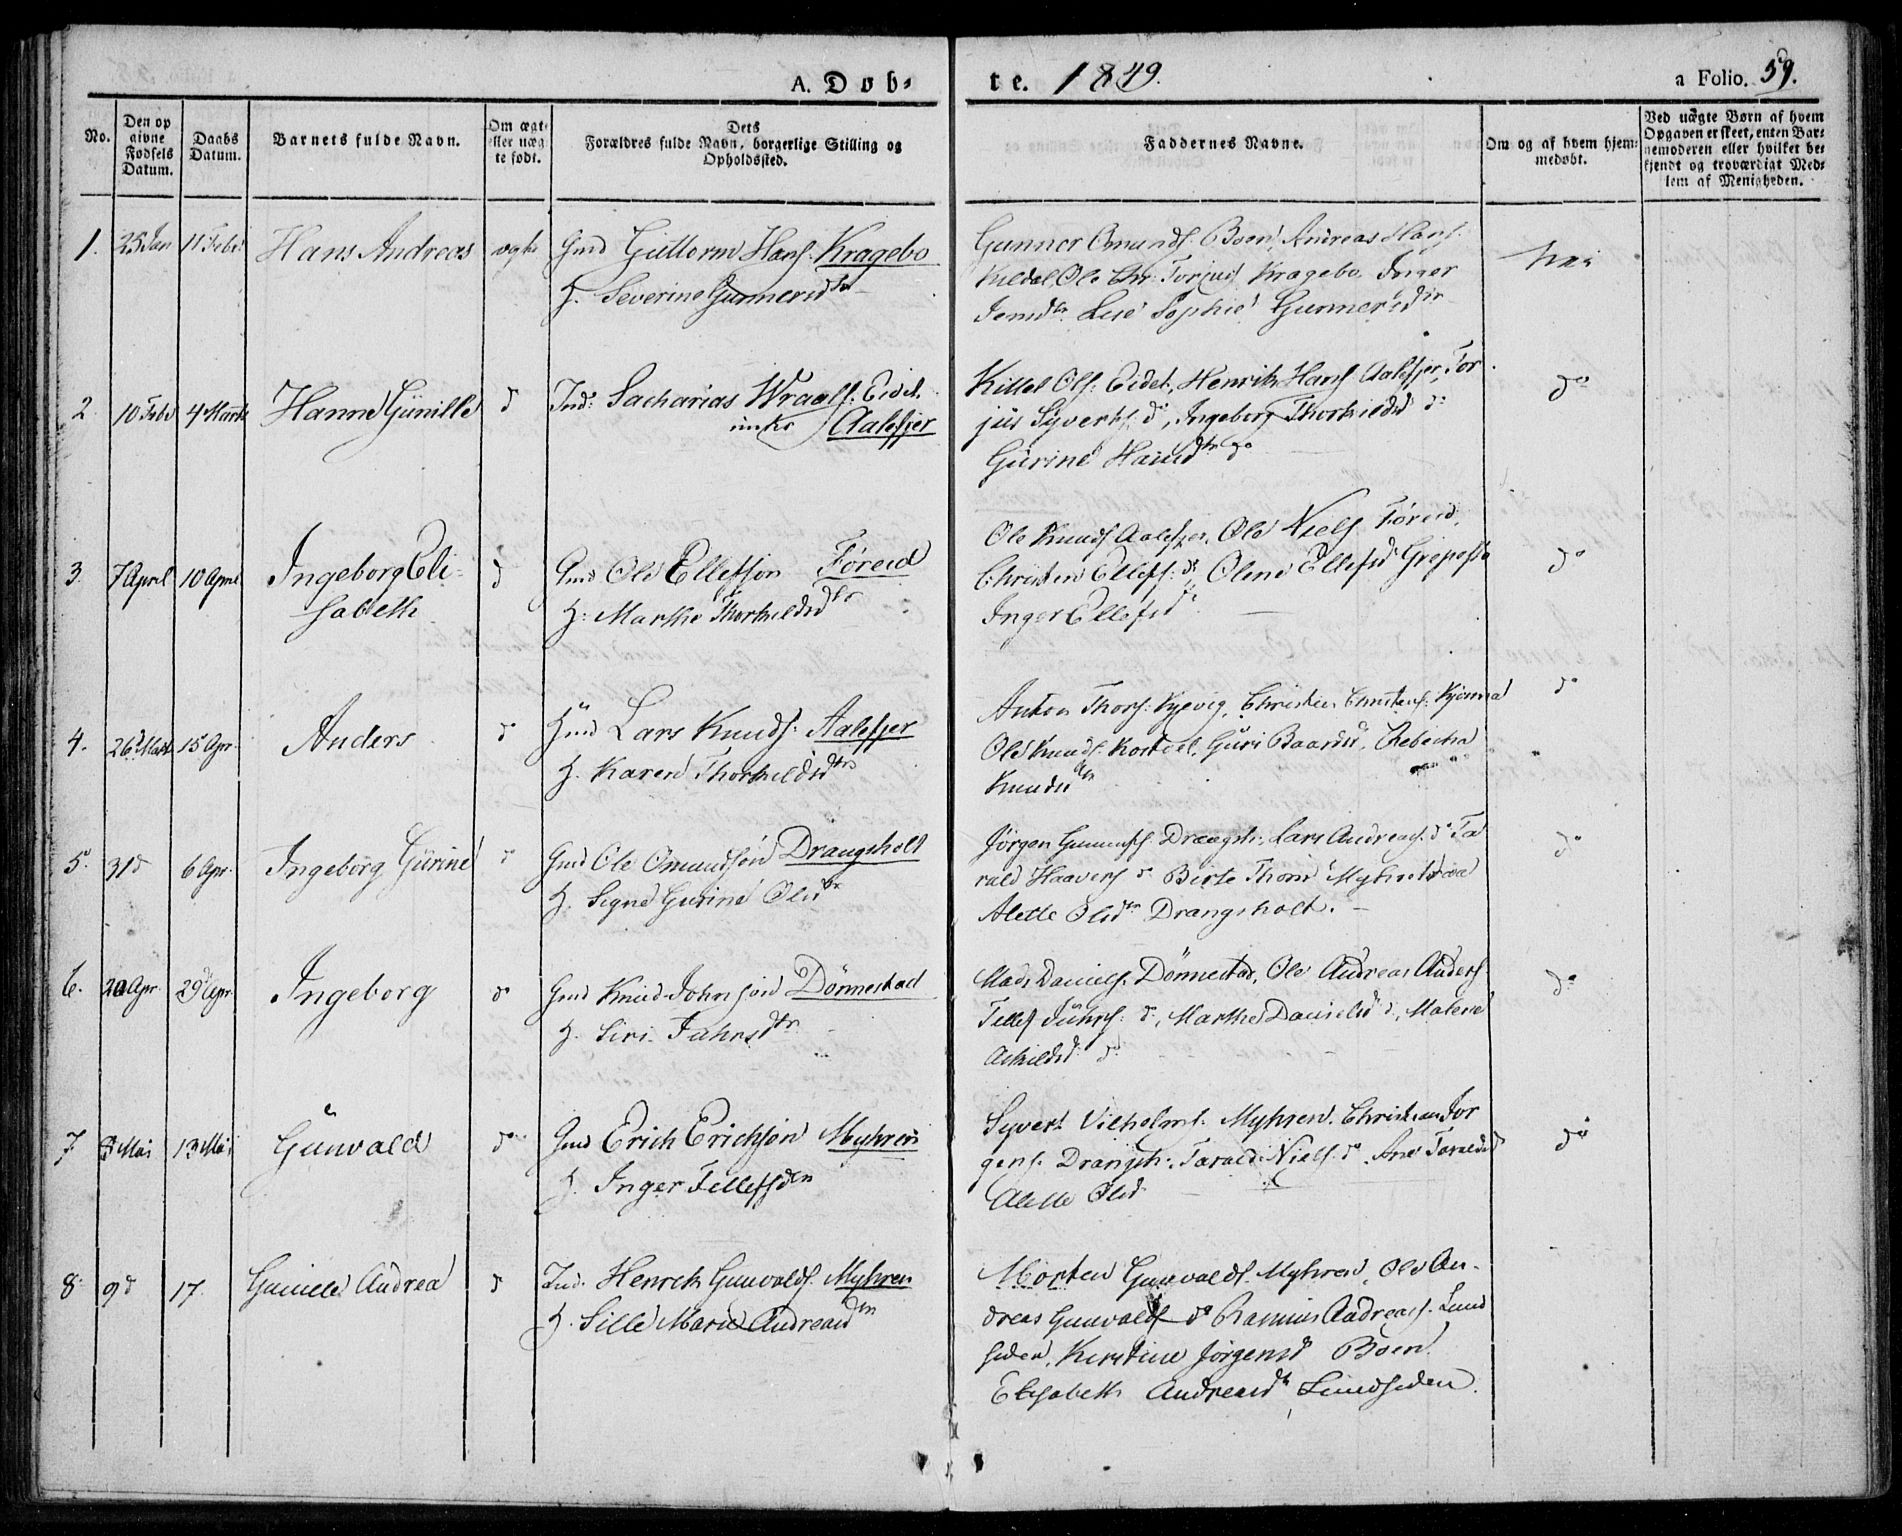 A. Døb-
te. 1849.
a Folio. 59.
No.
Den op
givne
Fødsels
Datum.
Daabs
Datum.
Barnets fulde Navn.
Om ægt-
eller uæg
te født.
Dets
Forældres fulde Navn, borgerlige Stilling og
Opholdssted.
Faddernes Navne.
Om og af hvem hjem-
medøbt.
Ved uægte Børn af hvem
Opgaven er skeet, enten Bar-
nemoderen eller hvilket be-
kjendt og troværdigt Med-
lem af Menigheden.
1. 25 Jan 11 Febr Hans Andreas ægte Gmd Guttorm Hans. Kragebo
H. Severine Gunnersdtr
Gunner Omunds. Boen, Andreas Hans.
Kuldal, Ole Chr. Torjus. Kragebo Inger
Jensdtr Lise Sophie Gunnersdtr
nei
2. 10 Febr 4 Marts Hanne Gunille d Ind: Sacharias Wraals. Eidet.
Aalefjer
Kittel Ols. Eidet, Henrik Hans Aalefjer, Tor
jus Syverts. do, Ingeborg Thorkildsd do
Gurine Hansdtr do
do
3. 7 April 10 April Ingeborg Eli-
sabeth
d Gmd Ole Ellefsøn Føreid
H: Marthe Thorkildsdtr
Ole Knuds Aalefjer, Ole Niels Føreid,
Christen Ellefs. do, Olene Ellefsd Grepesta
Inger Ellefsd
do
4. 26d Marts 15 Apr. Anders do Gmd Lars Knuds: Aalefjer
H. Karen Thorkildsdtr
Anton Thors. Kjevig, Christen Christens. Kjønna
Ole Knuds. Kostøl, Guri Baardsd, Rebecha
Knudsdtr
do
5. 31d 6 Apr. Ingeborg Gurine d Gmd Ole Omundsøn Drangsholt
H. Signe Gurine Olsdtr
Jørgen Gunnufs Drangsh., Lars Andreas. do Ta
rald Haavers do Birte Thors Myhrstraa
Alette Olsdtr Drangsholt.
do
6. 20 Apr. 29d Apr. Ingeborg do Gmd Knud Johnsøn Dønnestad
H. Siri Jahnsdtr
Mads Daniels. Dønnestad, Ole Andreas Anders
Tellef Jahns. do, Marthe Danielsd do, Malene
Askildsd do
do
7. 8 Mai 13 Mai Gunvald do Gmd Erich Erichsøn Myhren
H. Inger Tellefsdtr
Syvert Vilholms. Myhren. Christian Jør
gens. Drangsh., Tarald Niels. do, Ane Taraldsd
Alette Olsd
do
8. 9d 17. Gunille Andrea d Ind. Henrik Gunvalds. Myhren
H. Sille Marie Andreasdtr
Morten Gunvalds. Myhren, Ole An-
dreas Gunvalds do Rasmus Andreas. Lund
siden, Kirstine Jørgensd Boen.
Elisabeth Andreasdtr Lundsiden.